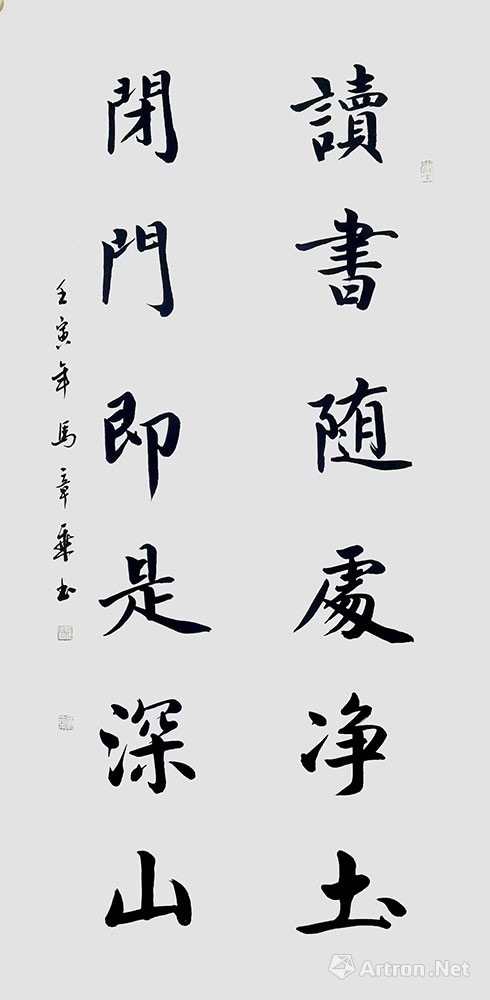 讀書随處净土
閉門即是深山
壬寅年馬章乘书
Artron.Net